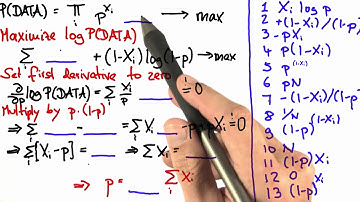 P(DATA) = ∏ᵢ p^Xᵢ ___ → max
Maximize log P(DATA)
∑ᵢ ___ + (1-Xᵢ) log(1-p) → max
Set first derivative to zero
∂/∂p log P(DATA) = ∑ᵢ Xᵢ/p = 0
Multiply by p·(1-p)
⇒ ∑ᵢ ___ - ___ = ∑ᵢ Xᵢ - p = 0
⇒ ∑ᵢ [Xᵢ - p] = ___ ⇒ ∑ᵢ Xᵢ = ___
⇒ p = ___ ∑ᵢ Xᵢ
1 Xᵢ log p
2 +(1-Xᵢ)/(1-p)
3 -pXᵢ
4 Xᵢ
5 p^(1-Xᵢ)
6 pN
7 -(1-Xᵢ)/(1-p)
8 1/N
9 (1-p)^(1-Xᵢ)
10 N
11 (1-p)Xᵢ
12 0
13 (1-p)^Xᵢ